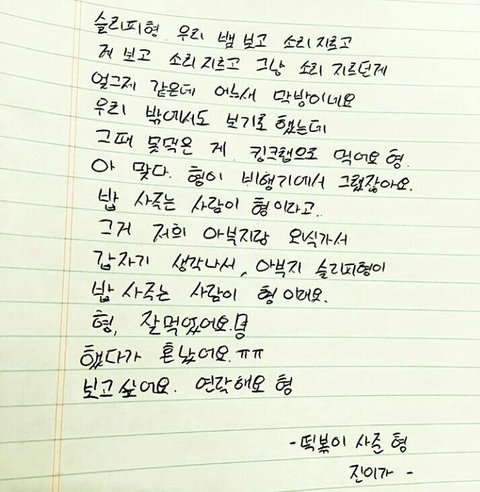 슬리피형. 우리 뱀 보고 소리지르고
게 보고 소리지르고 그냥 소리 지르던게
엊그제 같은데 어느새 막방이네요
우리 밖에서도 보기로 했는데
그때 못먹은 게. 킹크랩으로 먹어요 형.
아 맞다. 형이 비행기에서 그랬잖아요.
밥 사주는 사람이 형이라고.
그거 저희 아부지랑 외식가서
갑자기 생각나서, 아부지 슬리피형이
밥 사주는 사람이 형 이래요.
형, 잘먹었어요.형
했다가 혼났어요.ㅠㅠ
보고싶어요. 연락해요 형
-떡볶이 사준 형
진이가 -